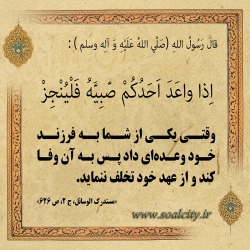 قَالَ رَسُولُ اللهِ (صَلَّي اللهُ عَلَيْهِ وَ آلِهِ وسلم ) :
اِذا واعَدَ اَحَدُکُمْ صَبِيَّهُ فَلْيُنْجِزْ
وقتی یکی از شما به فرزند
خود وعده‌ای داد پس به آن وفا
کند و از عهد خود تخلف ننماید.
«مستدرک الوسائل، ج ۲، ص ۶۲۶»
www.soalcity.ir